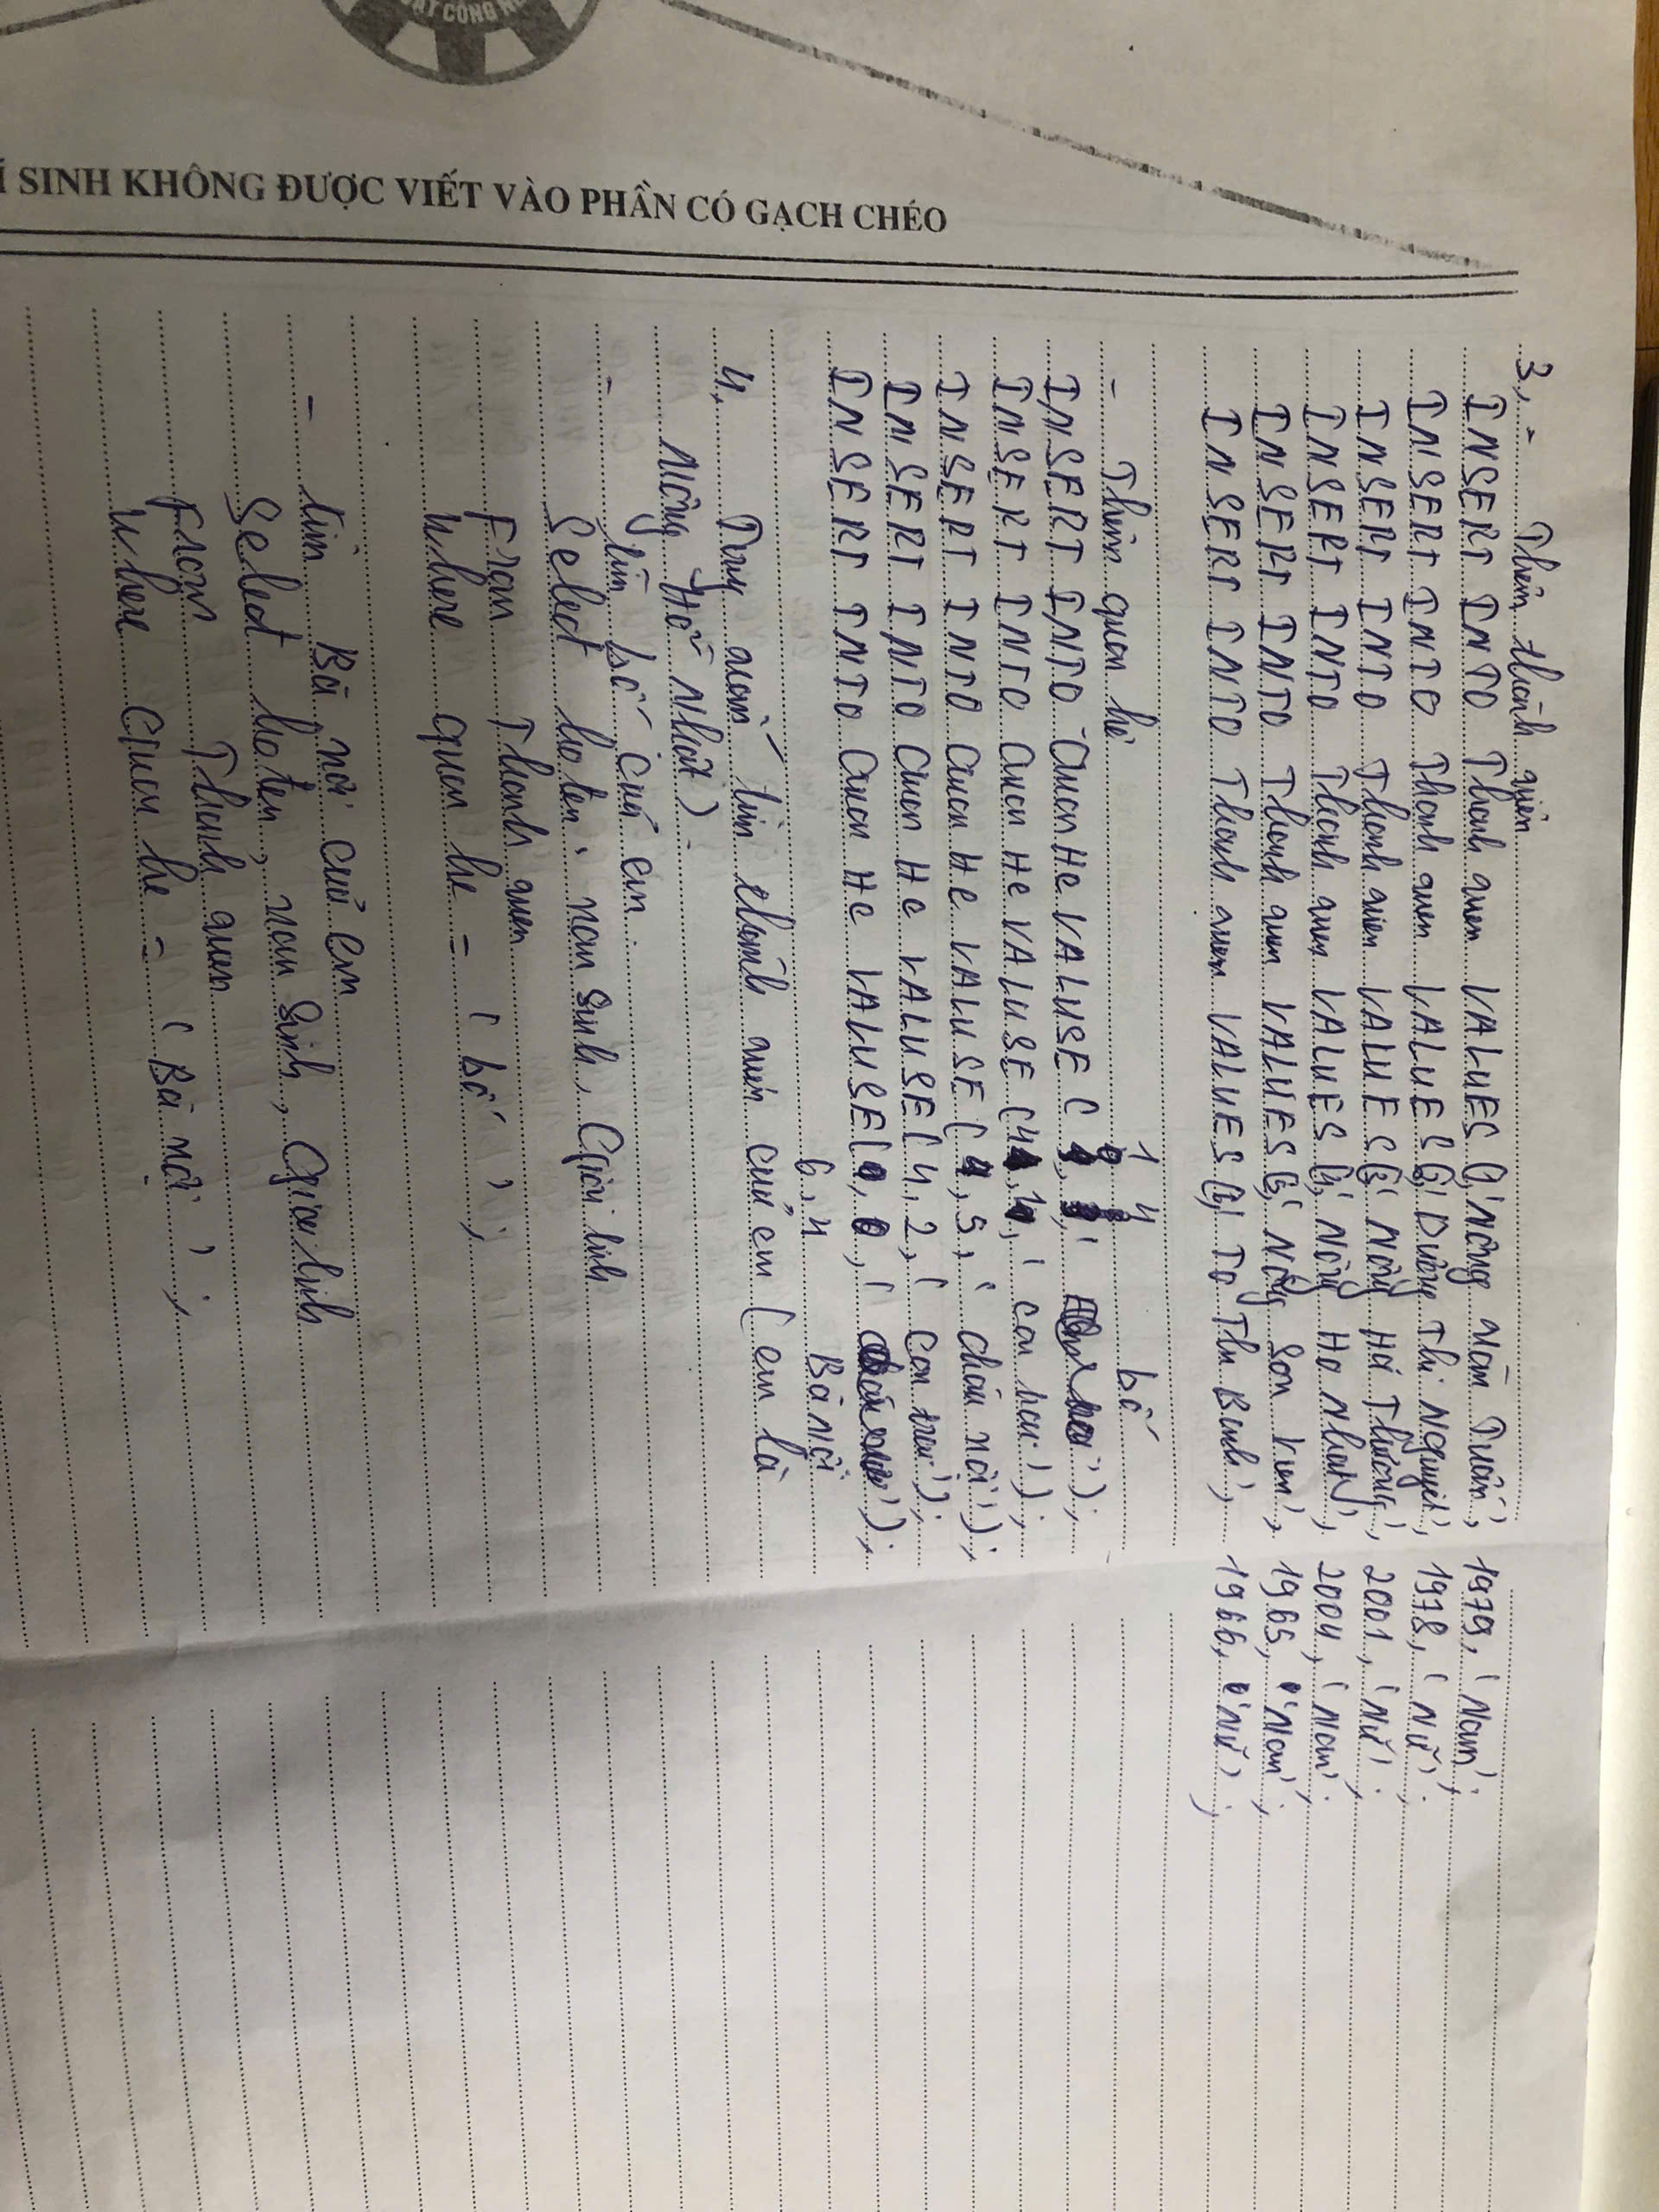 ÍSINH KHÔNG ĐƯỢC VIẾT VÀO PHẦN CÓ GẠCH CHÉO
3, - Thêm thành viên
INSERT INTO Thanh vien VALUES (1,'Nông Văn Tuấn', 1979, 'Nam';
INSERT INTO Thanh vien VALUES (2,'Dương Thị Nguyệt', 1978, 'Nữ';
INSERT INTO Thanh vien VALUES (3,' Nông Hà Thương', 2001, 'Nữ';
INSERT INTO Thanh vien VALUES (4,' Nông Ho Nhat', 2004, 'Nam';
INSERT INTO Thanh vien VALUES (5,' Nông Son Kien', 1965, 'Nam';
INSERT INTO Thanh vien VALUES (6,' To Thi Binh', 1966, 'Nữ';
- Thêm quan hệ 1 4 bố
INSERT INTO Quan He VALUSE ( ');
INSERT INTO Quan He VALUSE (4 , ' con trai');
INSERT INTO Quan He VALUSE (4, 5, ' cháu nội');
INSERT INTO Quan He VALUSE (4, 2, ' con trai');
INSERT INTO Quan He VALUSE ( ');
6, 4 Bà nội
4, tìm thành viên của em (em là
Nông Hồ Nhật).
- tìm bố của em.
Select ho ten, nam sinh, Gioi tinh
From Thanh vien
Where quan he = ' bố ';
- tìm Bà nội của em
Select ho ten, nam sinh, Gioi tinh
From Thanh vien
Where Quan he = ' Bà nội ';